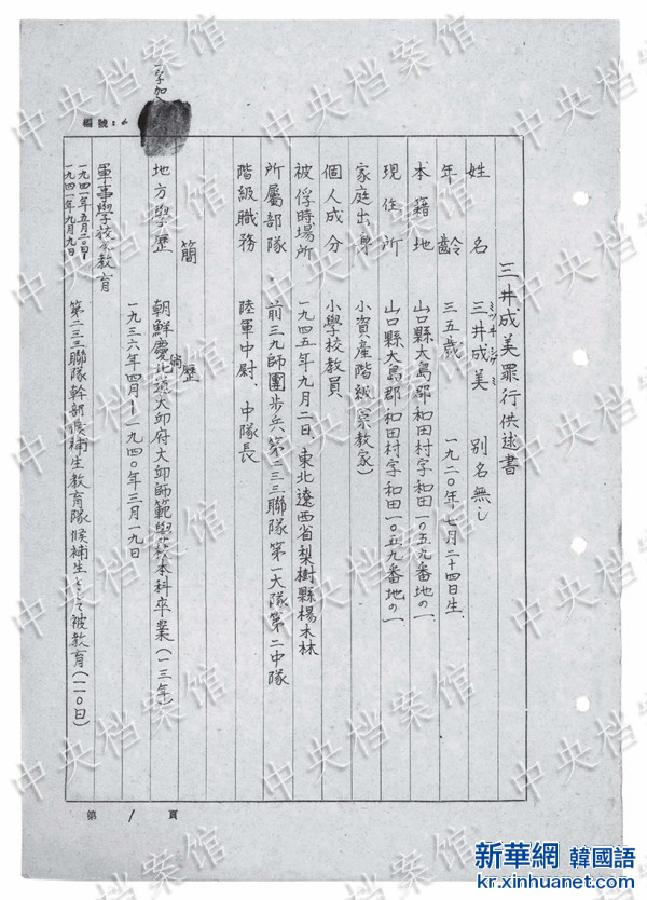 三井成美罪行供述書
姓名 三井成美 別名無し
ミツイ
年齡 三五歳 一九二〇年七月二十四日生
本籍地 山口縣大島郡和田村字和田一〇五九番地の一
現住所 山口縣大島郡和田村字和田一〇五九番地の一
家庭出身 小資産階級(宗教家)
個人成分 小學校教員
被俘時場所 一九四五年九月二日、東北遼西省梨樹縣楊木林
所屬部隊 前三九師團歩兵第二三三聯隊第一大隊第二中隊
階級職務 陸軍中尉、中隊長
簡歷
地方學歷 朝鮮慶北道大邱府大邱師範學校本科卒業(一三年)
一九三六年四月—一九四〇年三月一九日
軍事學校及教育
一九四一年五月二〇日
一九四一年九月九日
第二三三聯隊幹部候補生教育隊候補生として被教育(一一〇日)
編號:
一字加
第 1 頁
中央档案馆
新華網 韓國語
kr.xinhuanet.com